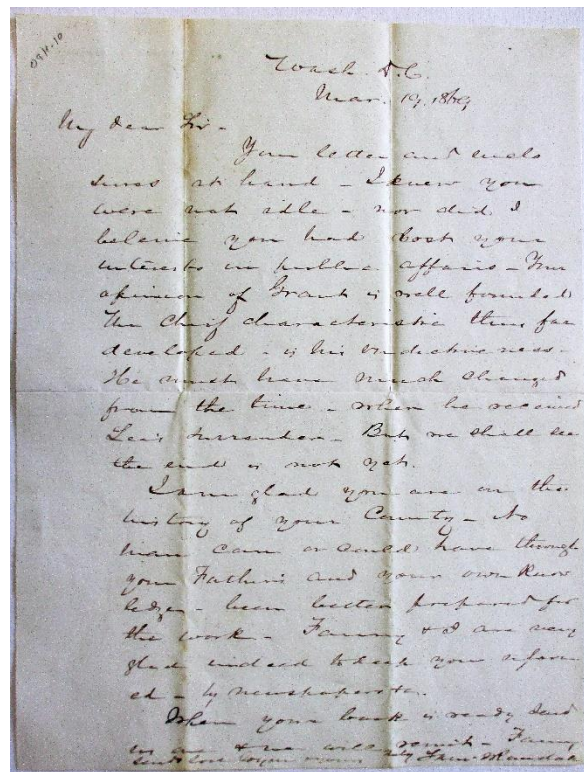 Wash D.C.
Mar. 19, 1869
My dear Sir -
Your letter and enclo
sures at hand - I knew you
were not idle - nor did I
beleive you had lost your
interests in public affairs - Your
opinion of Grant is well founded
The chief characteristic thus far
developed - is his vindictiveness -
He must have much changed
from the time - when he received
Lee's surrender - But we shall see
the end is not yet.
I am glad you are on the
history of your County - No
man can or could have through
your Father's and your own know
ledge - been better prepared for
the work - Fanny & I are very
glad indeed to keep you inform
ed - by newspapers &c.
When your book is ready send
us one & we will remit - Fanny
sends love to your